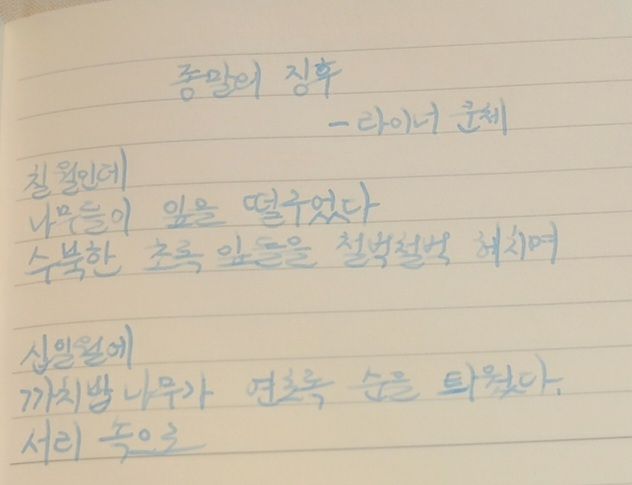 종말의 징후
- 라이너 쿤체
칠월인데
나무들이 잎을 떨구었다
수북한 초록 잎들을 철벅철벅 헤치며
십일월에
까치밥나무가 연초록 순을 틔웠다.
서리 속으로